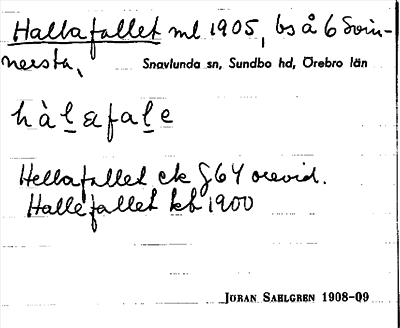 Hallafallet ml 1905, bs å 6 Svin-
nersta,
Snavlunda sn, Sundbo hd, Örebro län
hàlafale
Hellafallet ek 864 orevid.
Hallefallet kb 1900
JÖRAN SAHLGREN 1908-09